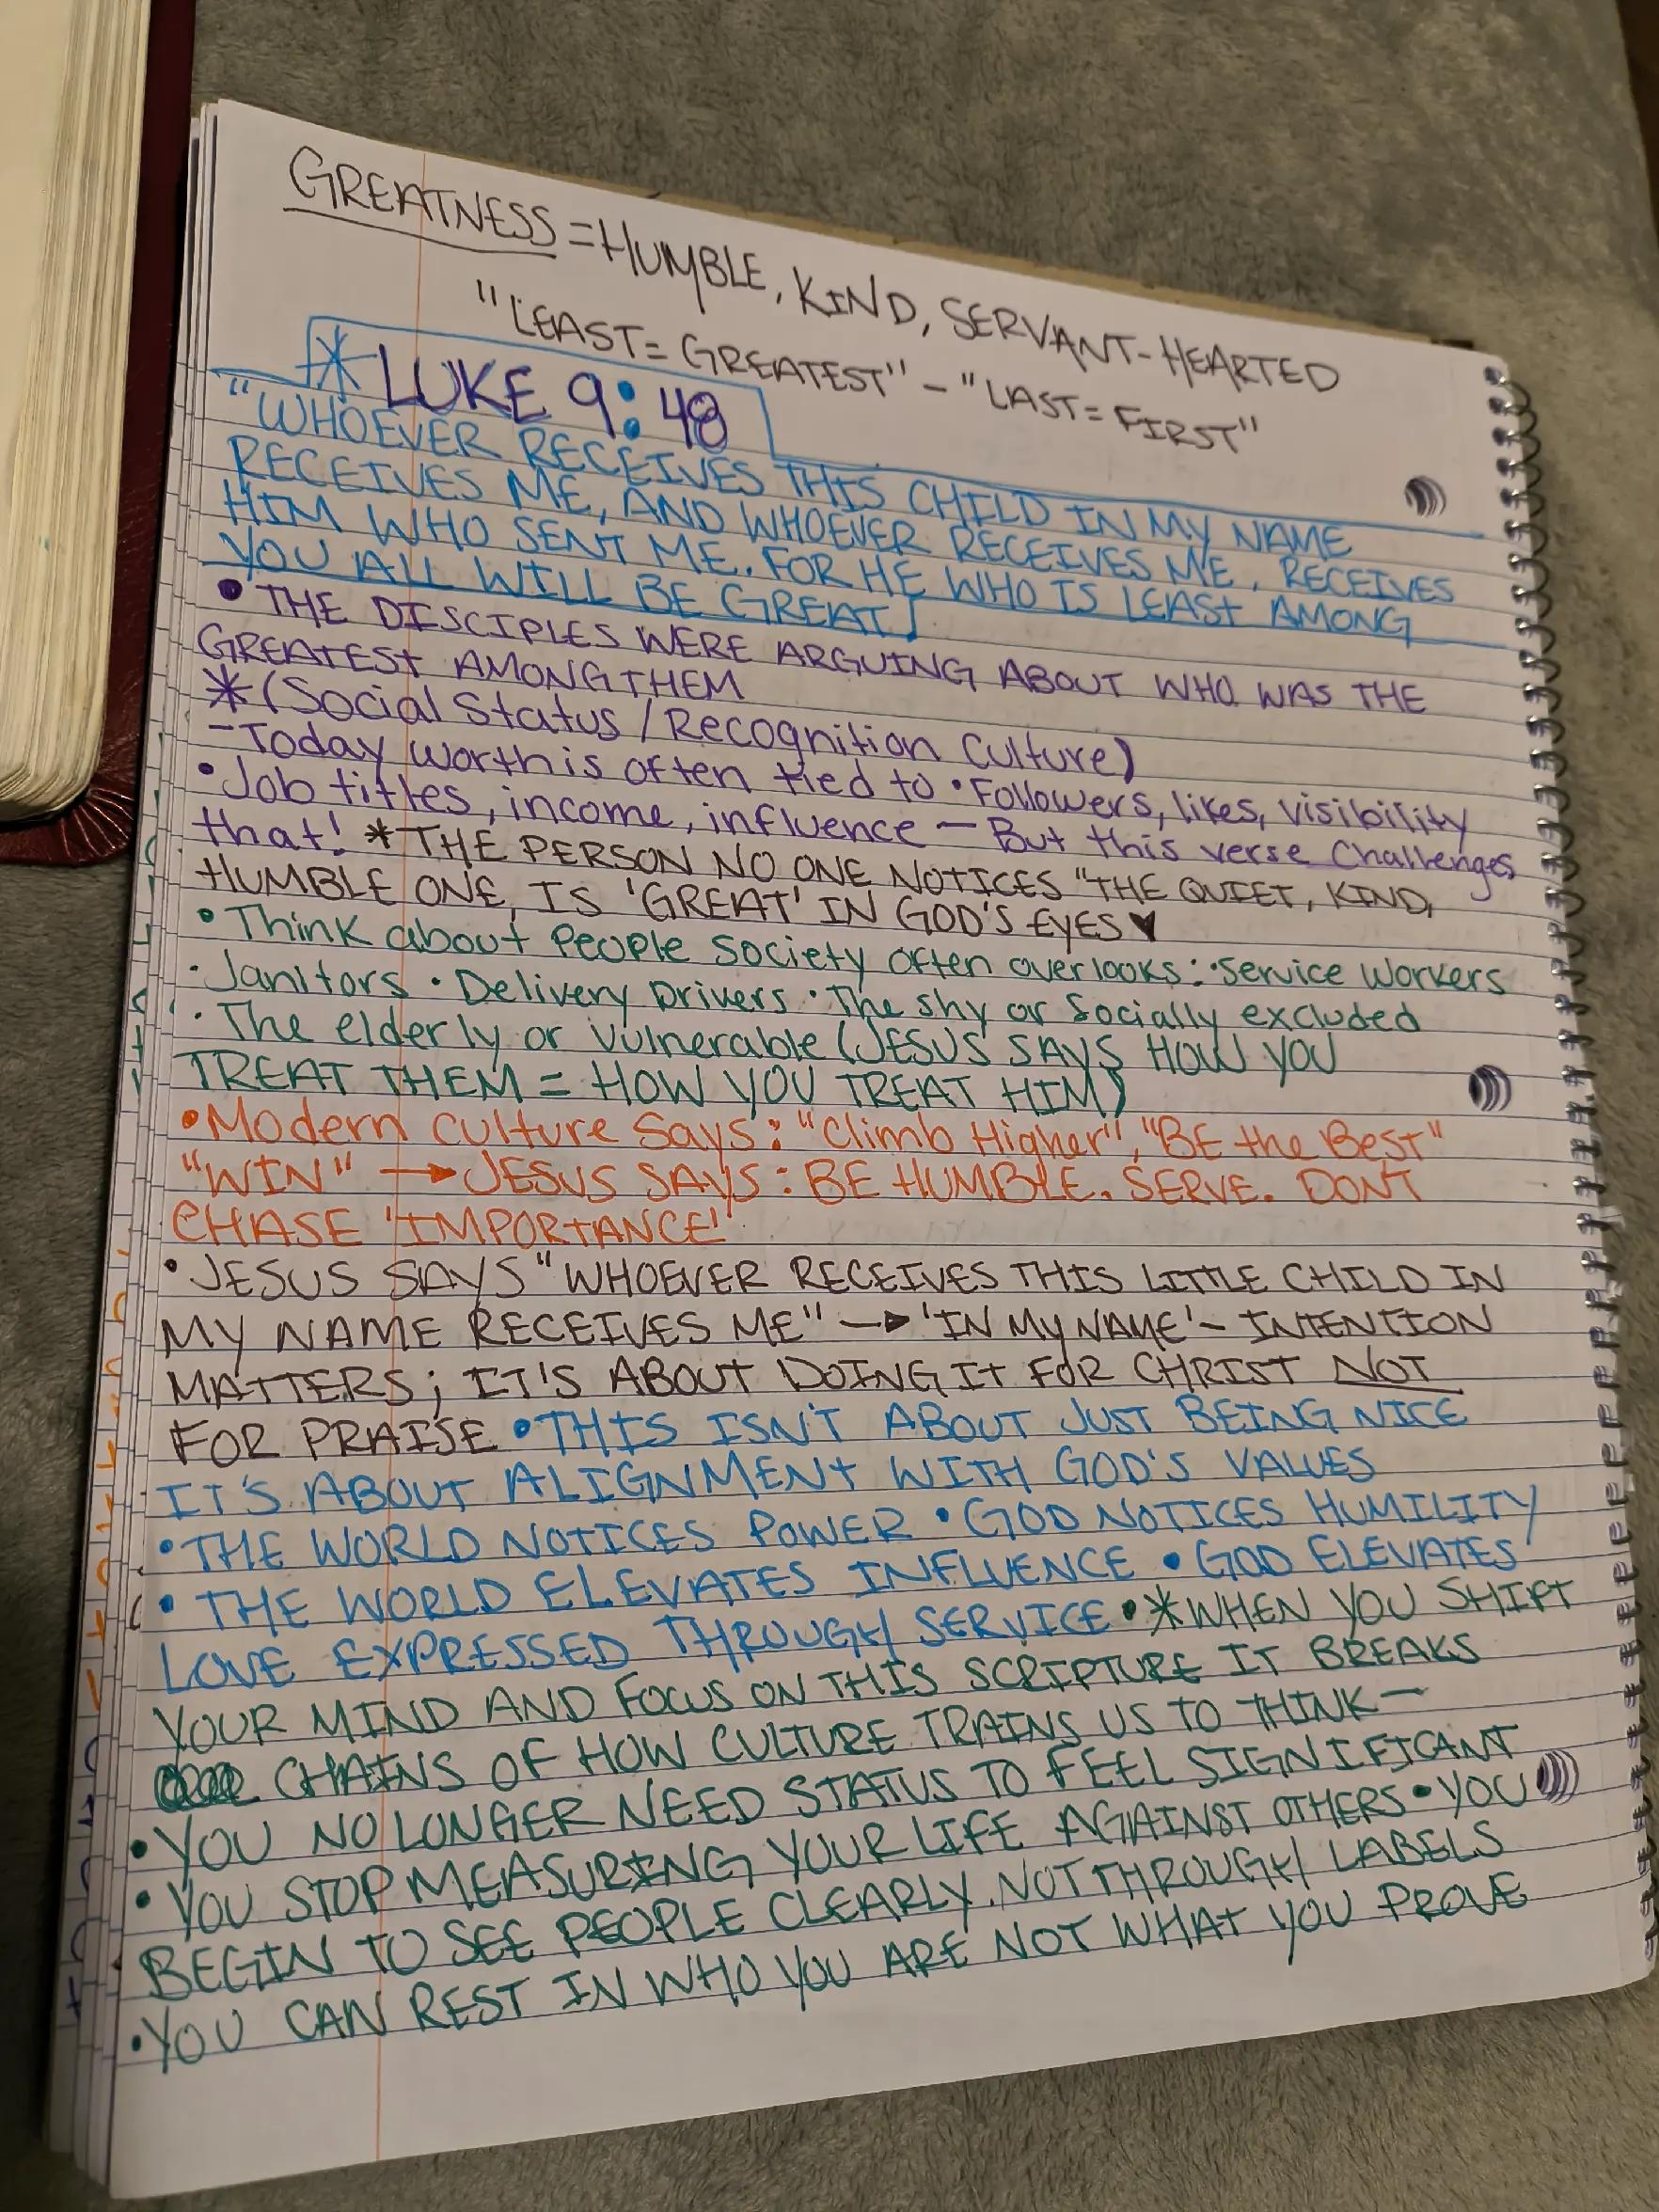 GREATNESS = HUMBLE, KIND, SERVANT-HEARTED
"LEAST = GREATEST" - "LAST = FIRST"
* LUKE 9:48
"WHOEVER RECEIVES THIS CHILD IN MY NAME
RECEIVES ME, AND WHOEVER RECEIVES ME, RECEIVES
HIM WHO SENT ME. FOR HE WHO IS LEAST AMONG
YOU ALL WILL BE GREAT
• THE DISCIPLES WERE ARGUING ABOUT WHO WAS THE
GREATEST AMONG THEM
* (Social Status / Recognition Culture)
- Today worth is often tied to • Followers, likes, visibility
• Job titles, income, influence - But this verse Challenges
that! * THE PERSON NO ONE NOTICES "THE QUIET, KIND,
HUMBLE ONE, IS 'GREAT' IN GOD'S EYES ♥
• Think about People Society often overlooks: • Service workers
• Janitors • Delivery Drivers • The shy or Socially excluded
• The elderly or vulnerable (JESUS SAYS HOW YOU
TREAT THEM = HOW YOU TREAT HIM)
• Modern Culture Says: "Climb Higher", "BE the BEST"
"WIN" → JESUS SAYS: BE HUMBLE. SERVE. DONT
CHASE 'IMPORTANCE'
• JESUS SAYS "WHOEVER RECEIVES THIS LITTLE CHILD IN
MY NAME RECEIVES ME" → 'IN MY NAME' - INTENTION
MATTERS; IT'S ABOUT DOING IT FOR CHRIST NOT
FOR PRAISE • THIS ISN'T ABOUT JUST BEING NICE
IT'S ABOUT ALIGNMENT WITH GOD'S VALUES
• THE WORLD NOTICES POWER • GOD NOTICES HUMILITY
• THE WORLD ELEVATES INFLUENCE • GOD ELEVATES
LOVE EXPRESSED THROUGH SERVICE • * WHEN YOU SHIFT
YOUR MIND AND FOCUS ON THIS SCRIPTURE IT BREAKS
CHAINS OF HOW CULTURE TRAINS US TO THINK -
• YOU NO LONGER NEED STATUS TO FEEL SIGNIFICANT
• YOU STOP MEASURING YOUR LIFE AGAINST OTHERS • YOU
BEGIN TO SEE PEOPLE CLEARLY. NOT THROUGH LABELS
• YOU CAN REST IN WHO YOU ARE NOT WHAT YOU PROVE